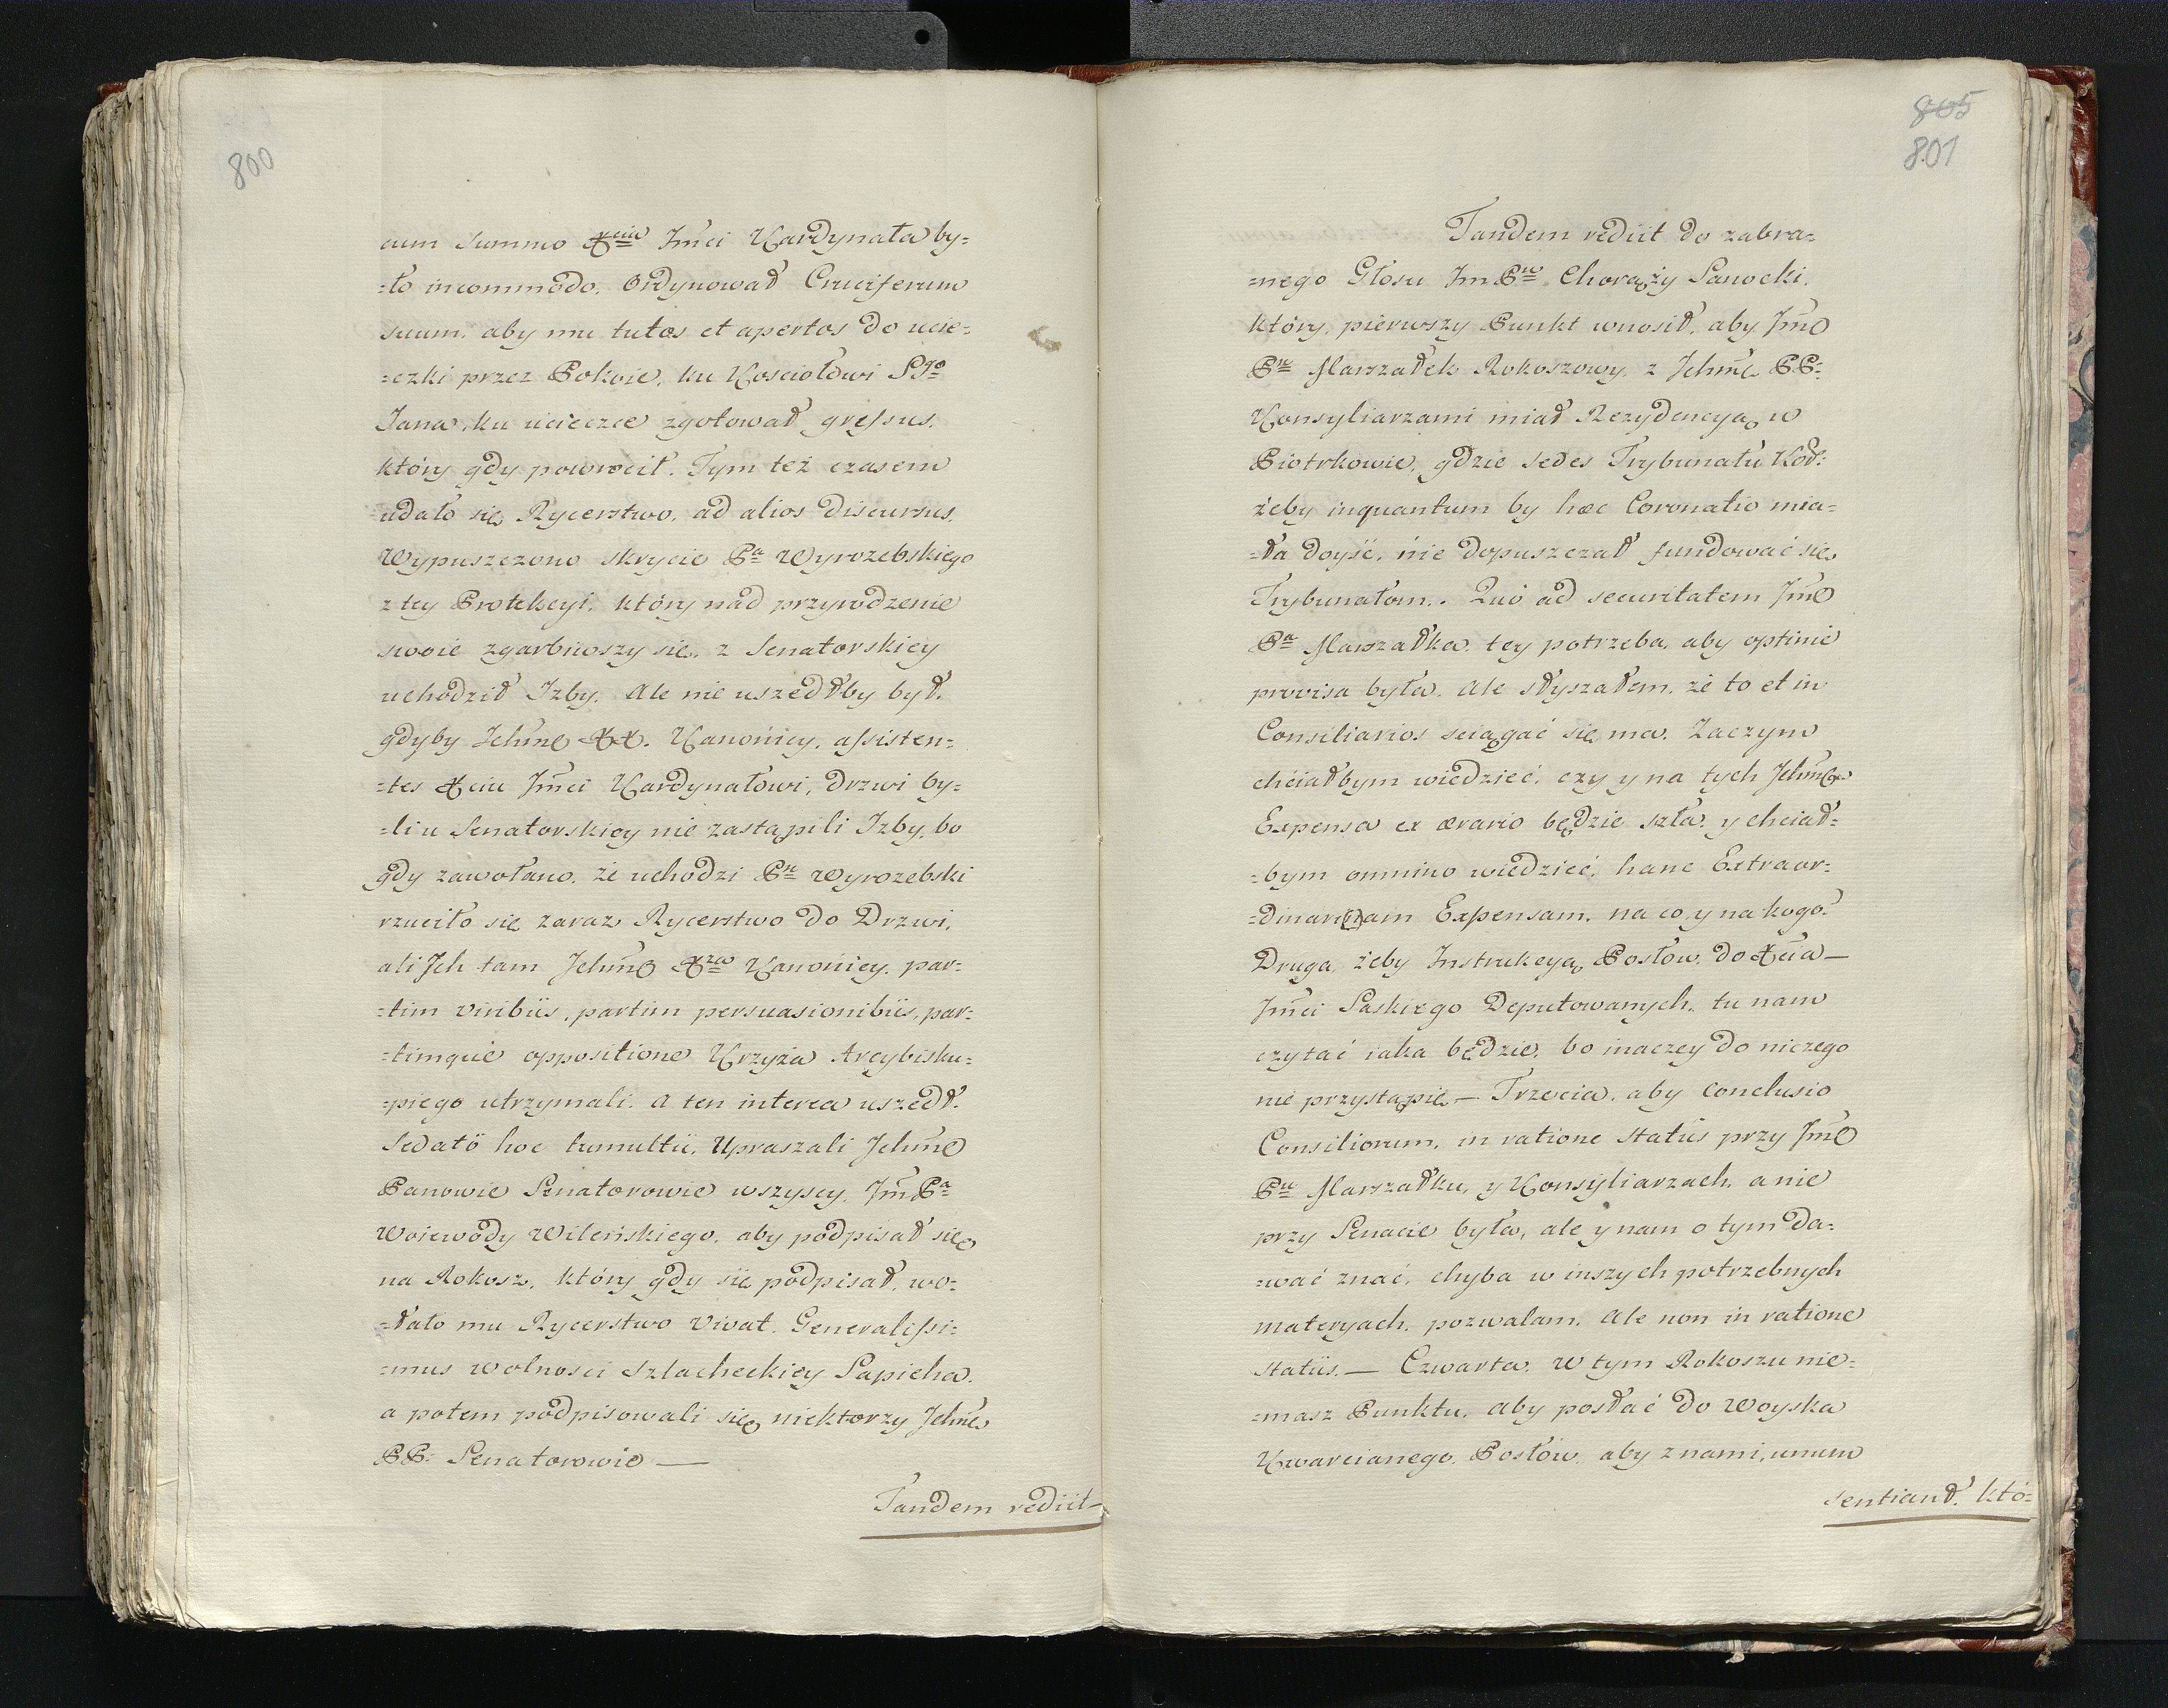 800
cum summo Xcia Jmci Kardynała by=
=ło incommodo. Ordynował Cruciferum
suum, aby mu tutos et apertos do ucie=
=czki przez Pokoie, ku Kosciołowi Sgo
Jana, ku ucieczce zgotował gressus.
który gdy powrocił. Tym też czasem
udało się Rycerstwo, ad alios discursus.
Wypuszczono skrycie Pa Wyrozebskiego
z tey Protekcyi, który nad przyrodzenie
swoie zgarbiwszy się, z Senatorskiey
uchodził Izby. Ale nie uszedłby był.
gdyby Ichmc XX. Kanonicy, assisten=
=tes Xciu Jmci Kardynałowi, drzwi by=
=li u Senatorskiey nie zastąpili Izby, bo
gdy zawołano, że uchodzi Pn Wyrozebski
rzuciło się zaraz Rycerstwo do Drzwi,
ali Ich tam Ichmc Xża Kanonicy, par=
=tim viribus, partim persuasionibus, par=
=timque oppositione Krzyża Arcybisku=
=piego utrzymali. A ten interea uszedł.
Sedato hoc tumultu, Upraszali Ichmc
Panowie Senatorowie wszyscy, Jm Pa
Woiewody Wileńskiego, aby podpisał się
na Rokosz, który gdy się podpisał, wo=
=łało mu Rycerstwo Vivat. Generalissi=
=mus Wolnosci Szlacheckiey Sapieha.
a potem podpisowali się niektorzy Ichmc
PP: Senatorowie —
Tandem rediit
805
801
Tandem rediit do zabra=
=nego Głosu Jm Pn Chorąży Sanocki.
który, pierwszy Punkt wnosił, aby Jmc
Pn Marszałek Rokoszowy, z Ichmc PP:
Konsyliarzami miał Rezydencyą w
Piotrkowie, gdzie sedes Trybunału Kor:
żeby inquantum by hæc Coronatio mia=
=ła doyść, nie dopuszczał fundować się
Trybunałom. Quo ad securitatem Jmc
Pa Marszałka, tey potrzeba, aby optime
provisa była. Ale słyszałem, że to et in
Consiliarios sciągać się ma. Zaczym
chciałbym wiedzieć, czy y na tych Ichmc
Expensa ex ærario będzie szła, y chciał=
=bym omnino wiedzieć, hanc Extraor=
=dinar(i)am Expensam, na co, y na kogo.
Druga, żeby Instrukcya, Posłow, do Xcia —
Jmci Saskiego Deputowanych, tu nam
czytać iaka będzie, bo inaczey do niczego
nie przystąpię — Trzecia, aby conclusio
Consiliorum, in ratione status przy Jmc
Pu Marszałku, y Konsyliarzach, a nie
przy Senacie była, ale y nam o tym da=
=wać znać, chyba w inszych potrzebnych
materyach, pozwalam. Ale non in ratione
status. — Czwarta. W tym Rokoszu nie=
=masz Punktu, aby posłać do Woyska
Kwarcianego, Posłow, aby z nami, unum
sentiand. któ=